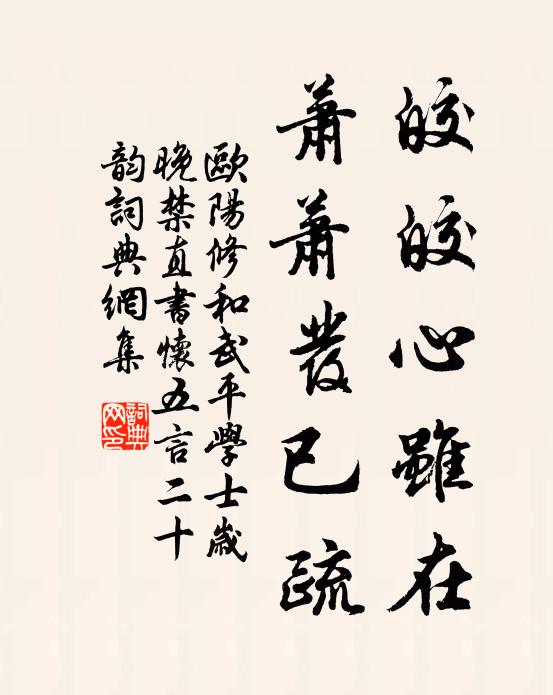 皎皎心雖在
蕭蕭發已疏
歐陽修和武平學士歲
晚禁直書懷五言二十
韵詞典網集
詞典
网印